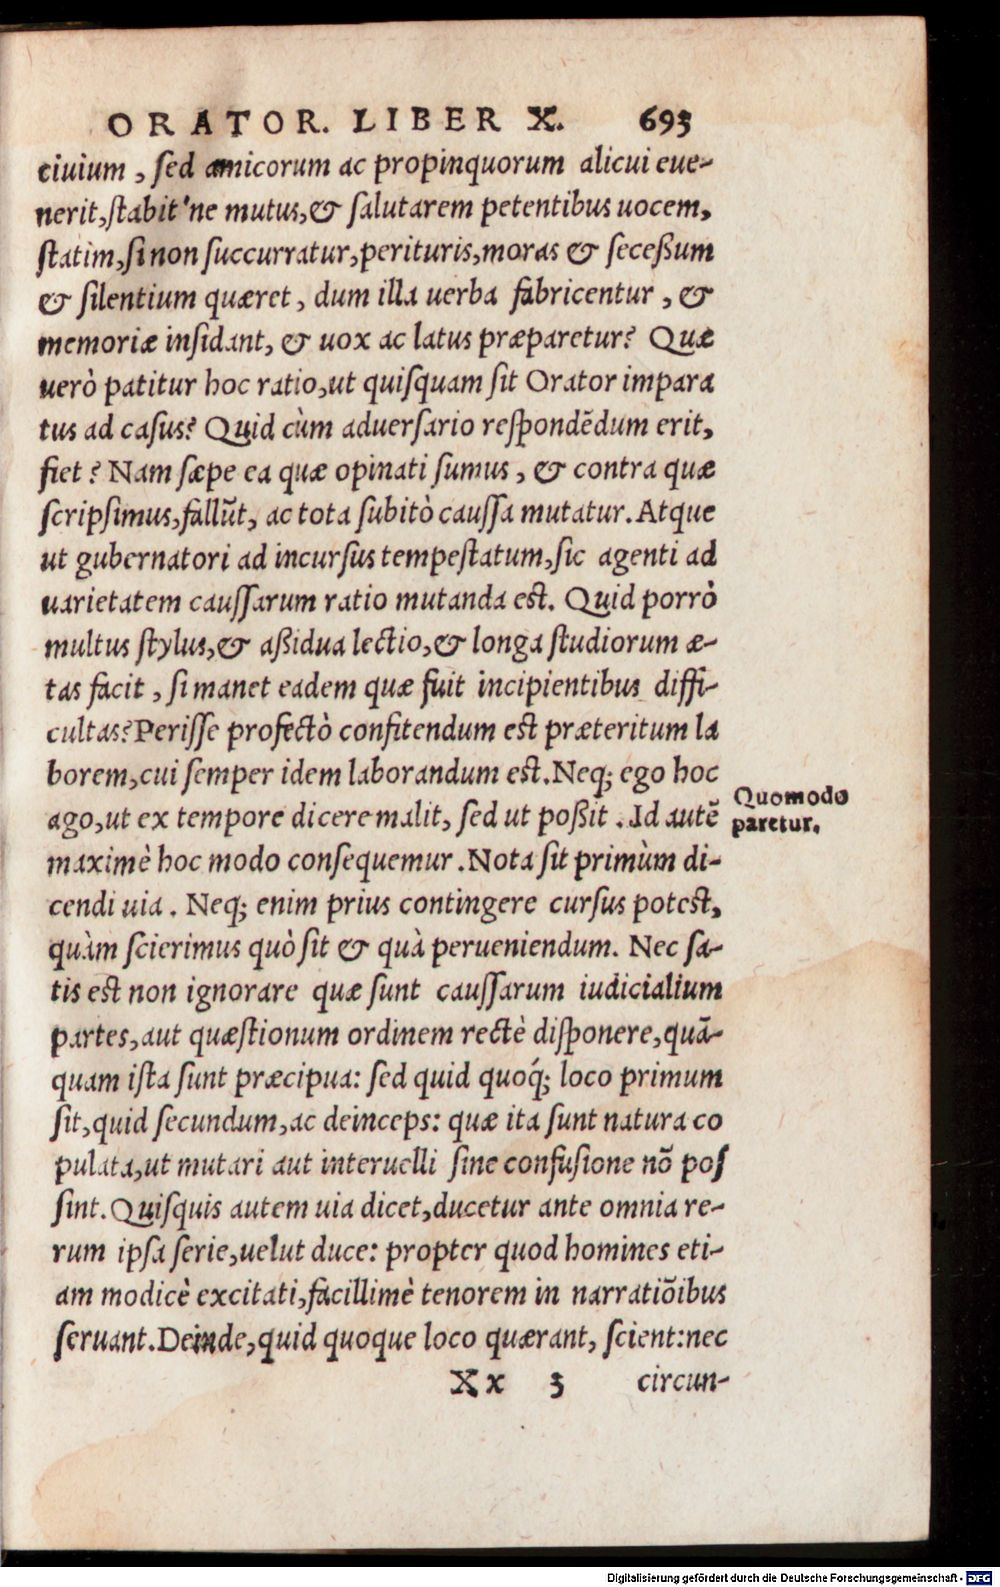 ORATOR. LIBER X. 693
ciuium, sed amicorum ac propinquorum alicui eue-
nerit, stabit'ne mutus, & salutarem petentibus uocem,
statim, si non succurratur, perituris, moras & seceßum
& silentium quæret, dum illa uerba fabricentur, &
memoriæ insidant, & uox ac latus præparetur? Quæ
uerò patitur hoc ratio, ut quisquam sit Orator impara
tus ad casus? Quid cùm aduersario respondẽdum erit,
fiet? Nam sæpe ea quæ opinati sumus, & contra quæ
scripsimus, fallũt, ac tota subitò caussa mutatur. Atque
ut gubernatori ad incursus tempestatum, sic agenti ad
uarietatem caussarum ratio mutanda est. Quid porrò
multus stylus, & aßidua lectio, & longa studiorum æ-
tas facit, si manet eadem quæ fuit incipientibus diffi-
cultas? Perisse profectò confitendum est præteritum la
borem, cui semper idem laborandum est. Neq; ego hoc
ago, ut ex tempore dicere malit, sed ut poßit. Id autẽ
Quomodo
paretur.
maximè hoc modo consequemur. Nota sit primùm di-
cendi uia. Neq; enim prius contingere cursus potest,
quàm scierimus quò sit & quà perueniendum. Nec sa-
tis est non ignorare quæ sunt caussarum iudicialium
partes, aut quæstionum ordinem rectè disponere, quã-
quam ista sunt præcipua: sed quid quoq́; loco primum
sit, quid secundum, ac deinceps: quæ ita sunt natura co
pulata, ut mutari aut interuelli sine confusione nõ pos
sint. Quisquis autem uia dicet, ducetur ante omnia re-
rum ipsa serie, uelut duce: propter quod homines eti-
am modicè excitati, facillimè tenorem in narratiõibus
seruant. Deinde, quid quoque loco quærant, scient: nec
Xx 3 circun-
Digitalisierung gefördert durch die Deutsche Forschungsgemeinschaft - DFG